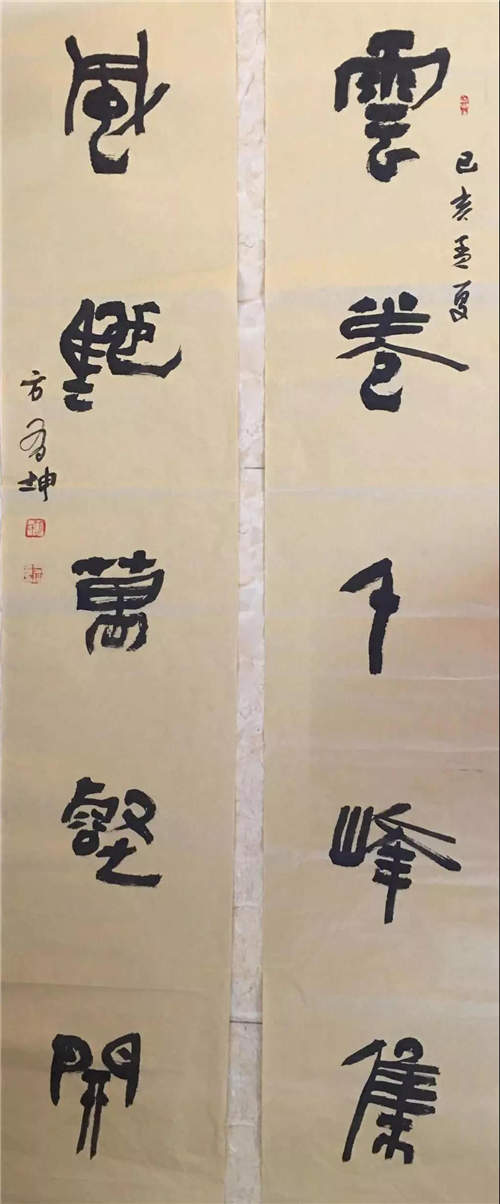 雲卷千峰集
己亥孟夏
風馳萬壑開
方有坤